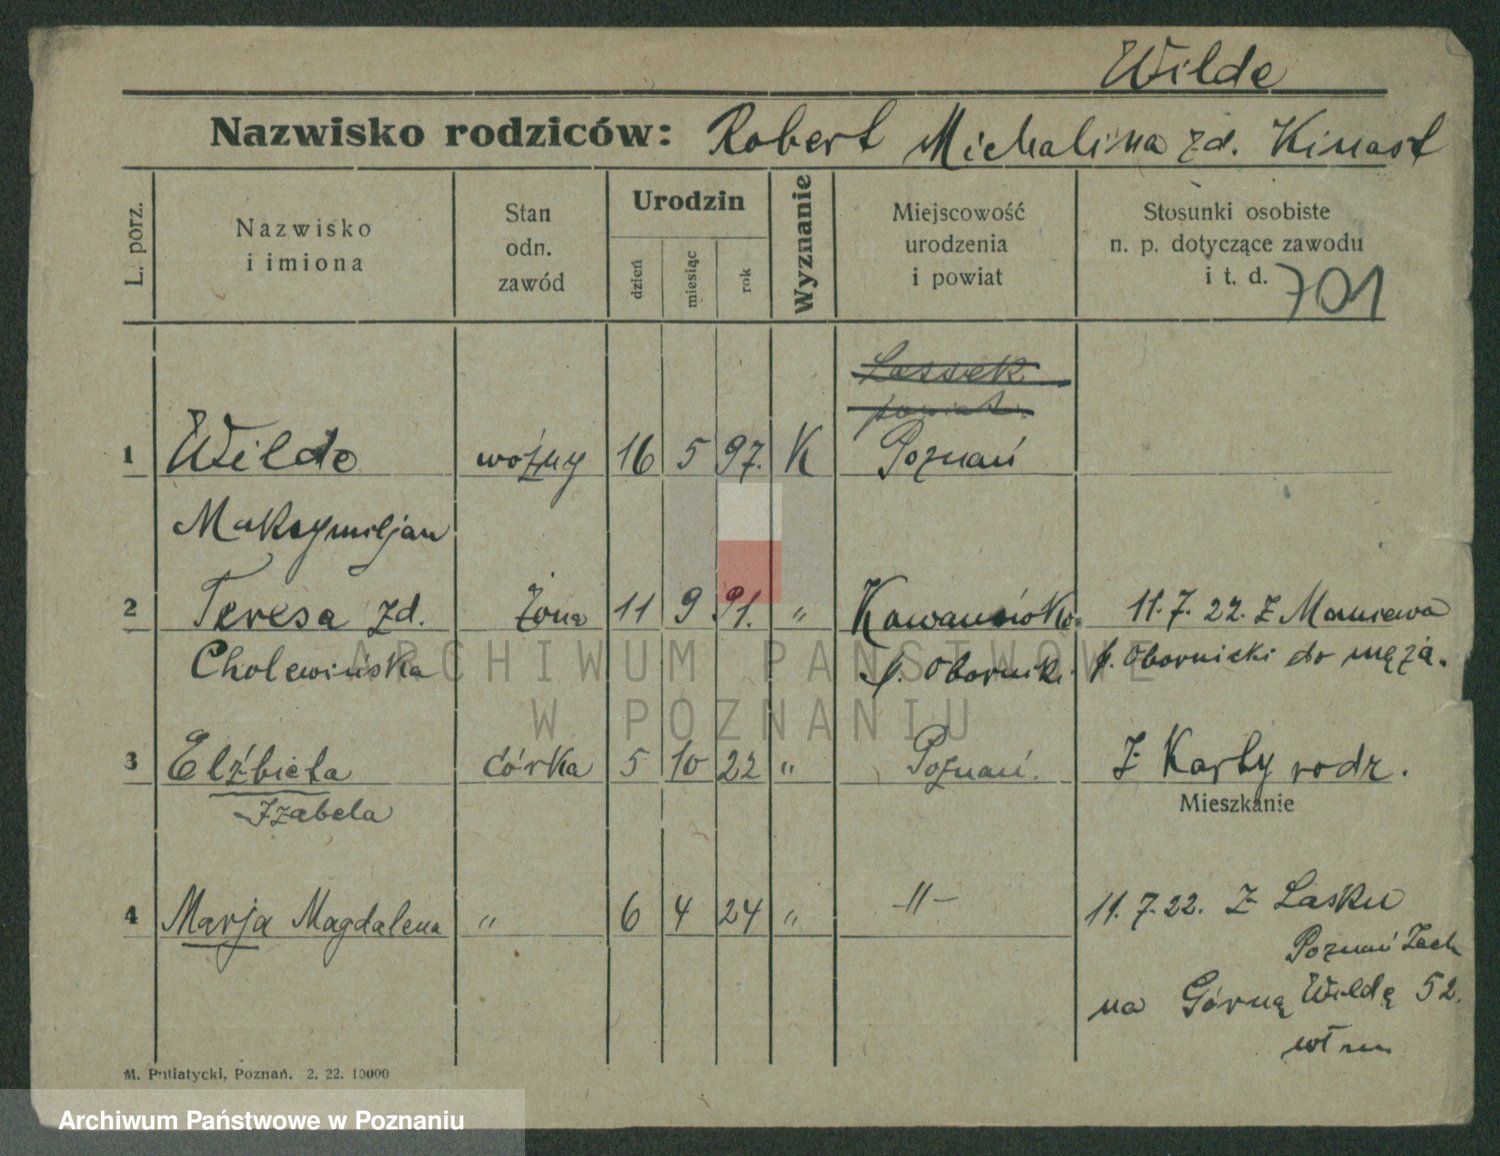 Wilde
Nazwisko rodziców: Robert Michalina zd. Kinast
L. porz.
Nazwisko i imiona
Stan odn. zawód
Urodzin
dzień miesiąc rok
Wyznanie
Miejscowość urodzenia i powiat
Stosunki osobiste n. p. dotyczące zawodu i t. d.
701
Lassek
powiat
1 Wilde woźny 16 5 97. K Poznań
Maksymiljan
2 Teresa zd. żona 11 9 91. " 11. 7. 22. z
Cholewińska p. Obornik. p. Obornicki do męża.
3 Elżbieta córka 5 10 22 " Poznań. Z Karty rodz.
Izabela
Mieszkanie
4 Marja Magdalena " 6 4 24 " -"- 11. 7. 22. Z Lasku
Poznań Zach
na Górną Wildę 52.
M. Putiatycki, Poznań. 2. 22. 10000
ARCHIWUM PAŃSTWOWE
W POZNANIU
Archiwum Państwowe w Poznaniu